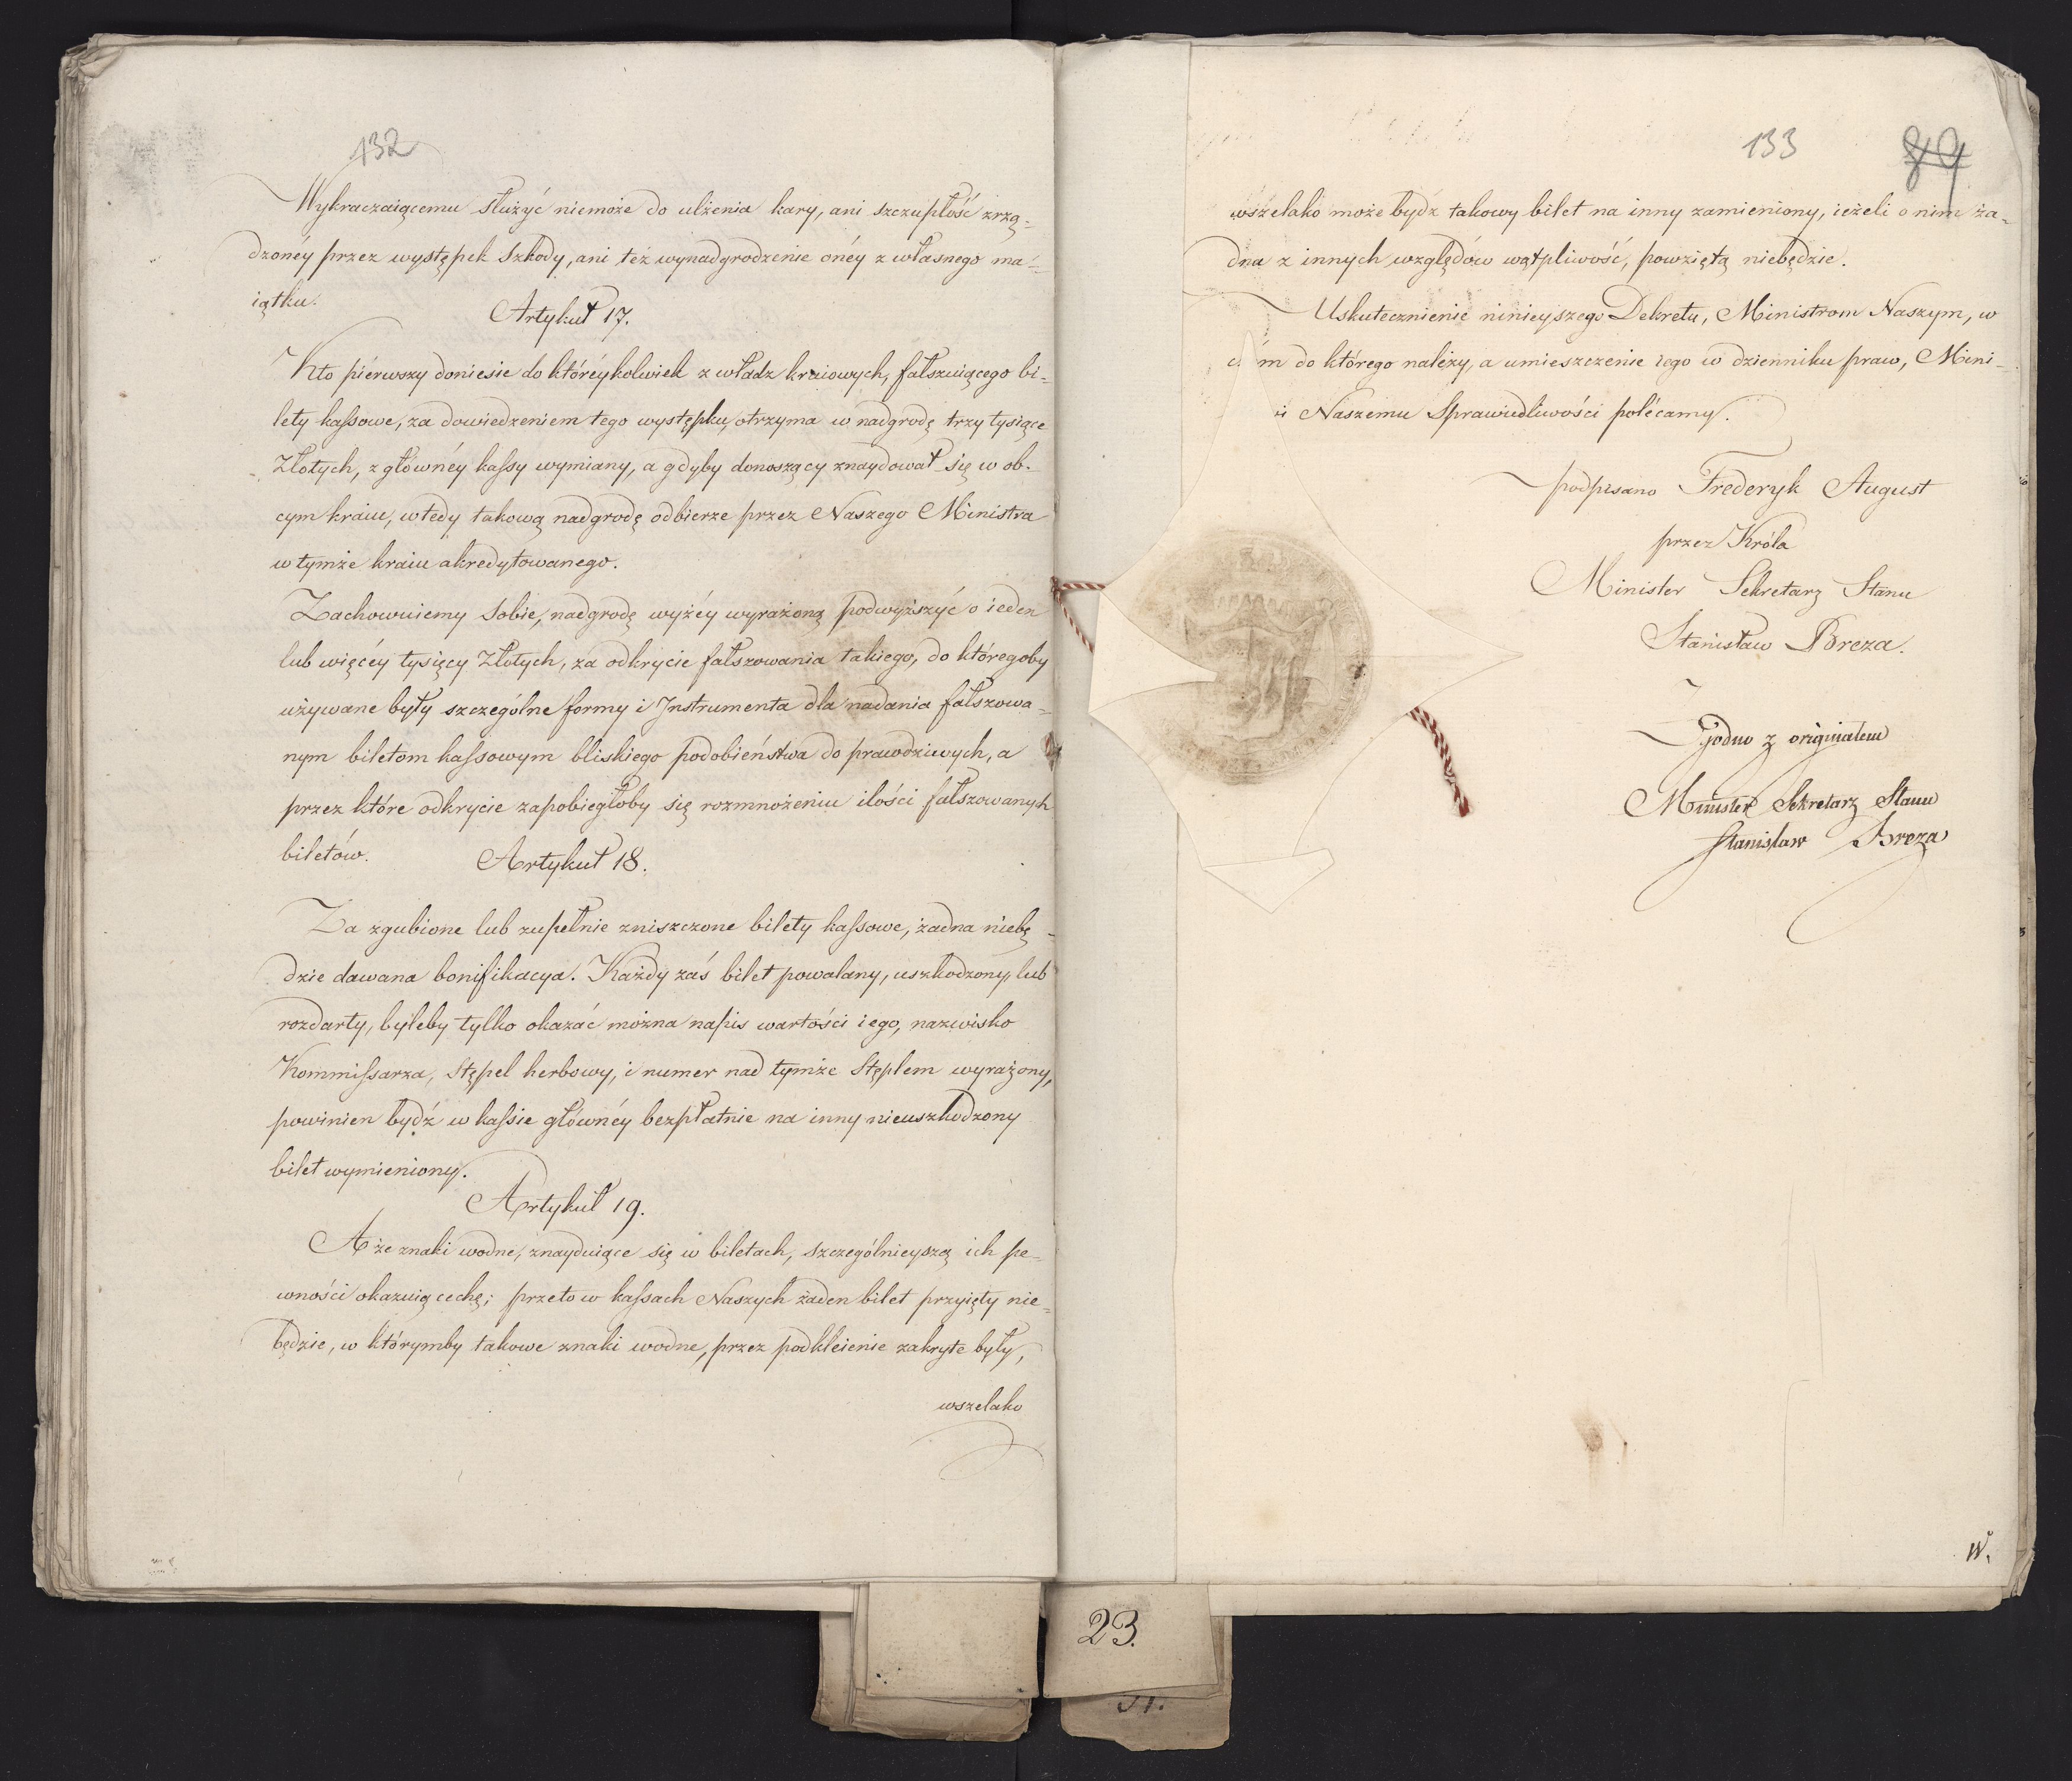 132
Wykraczaiącemu służyć niemoże do ulżenia kary, ani szczupłość zrzą-
dzonéy przez występek szkody, ani też wynadgrodzenie onéy z własnego ma-
iątku.
Artykuł 17.
Kto piérwszy doniesie do któréykolwiek z władz kraiowych, fałszuiącego bi-
lety kassowe, za dowiedzeniem tego występku, otrzyma w nadgrodę trzy tysiące
Złotych, z główney kassy wymiany, a gdyby donoszący znaydował się w ob-
cym kraiu, wtedy takową nadgrodę odbierze przez Naszego Ministra
w tymże kraiu akredytowanego.
Zachowuiemy sobie, nadgrodę wyżéy wyrażoną podwyższyć o ieden
lub więcéy tysięcy Złotych, za odkrycie fałszowania takiego, do któregoby
używane były szczególne formy i Instrumenta dla nadania fałszowa-
nym biletom kassowym bliskiego podobieństwa do prawdziwych, a
przez które odkrycie zapobiegłoby się rozmnożeniu ilości fałszowanych
biletów.
Artykuł 18.
Za zgubione lub zupełnie zniszczone bilety kassowe, żadna niebę-
dzie dawana bonifikacya. Każdy zaś bilet powalany, uszkodzony, lub
rozdarty, byleby tylko okazać można napis wartości iego, nazwisko
Kommissarza, Stępel herbowy, i numer nad tymże Stęplem wyrażony,
powinien bydź w kassie główney bezpłatnie na inny nieuszkodzony
bilet wymieniony.
Artykuł 19.
A że znaki wodne, znayduiące się w biletach, szczególnieyszą ich pe-
wności okazuią cechę; przeto w kassach Naszych żaden bilet przyięty nie-
będzie, w którymby takowe znaki wodne, przez podkleienie zakryte były,
wszelako
133
89
wszelako może bydź takowy bilet na inny zamieniony, ieżeli o nim ża-
dna z innych względów wątpliwość, powziętą niebędzie.
Uskutecznienie ninieyszego Dekretu, Ministrom Naszym, w
czém do którego należy, a umieszczenie iego w dzienniku praw, Mini-
i Naszemu Sprawiedliwości polécamy.
podpisano Frederyk August
przez Króla
Minister Sekretarz Stanu
Stanisław Breza.
Zgodno z originałem
Minister Sekretarz Stanu
Stanisław Breza
23.